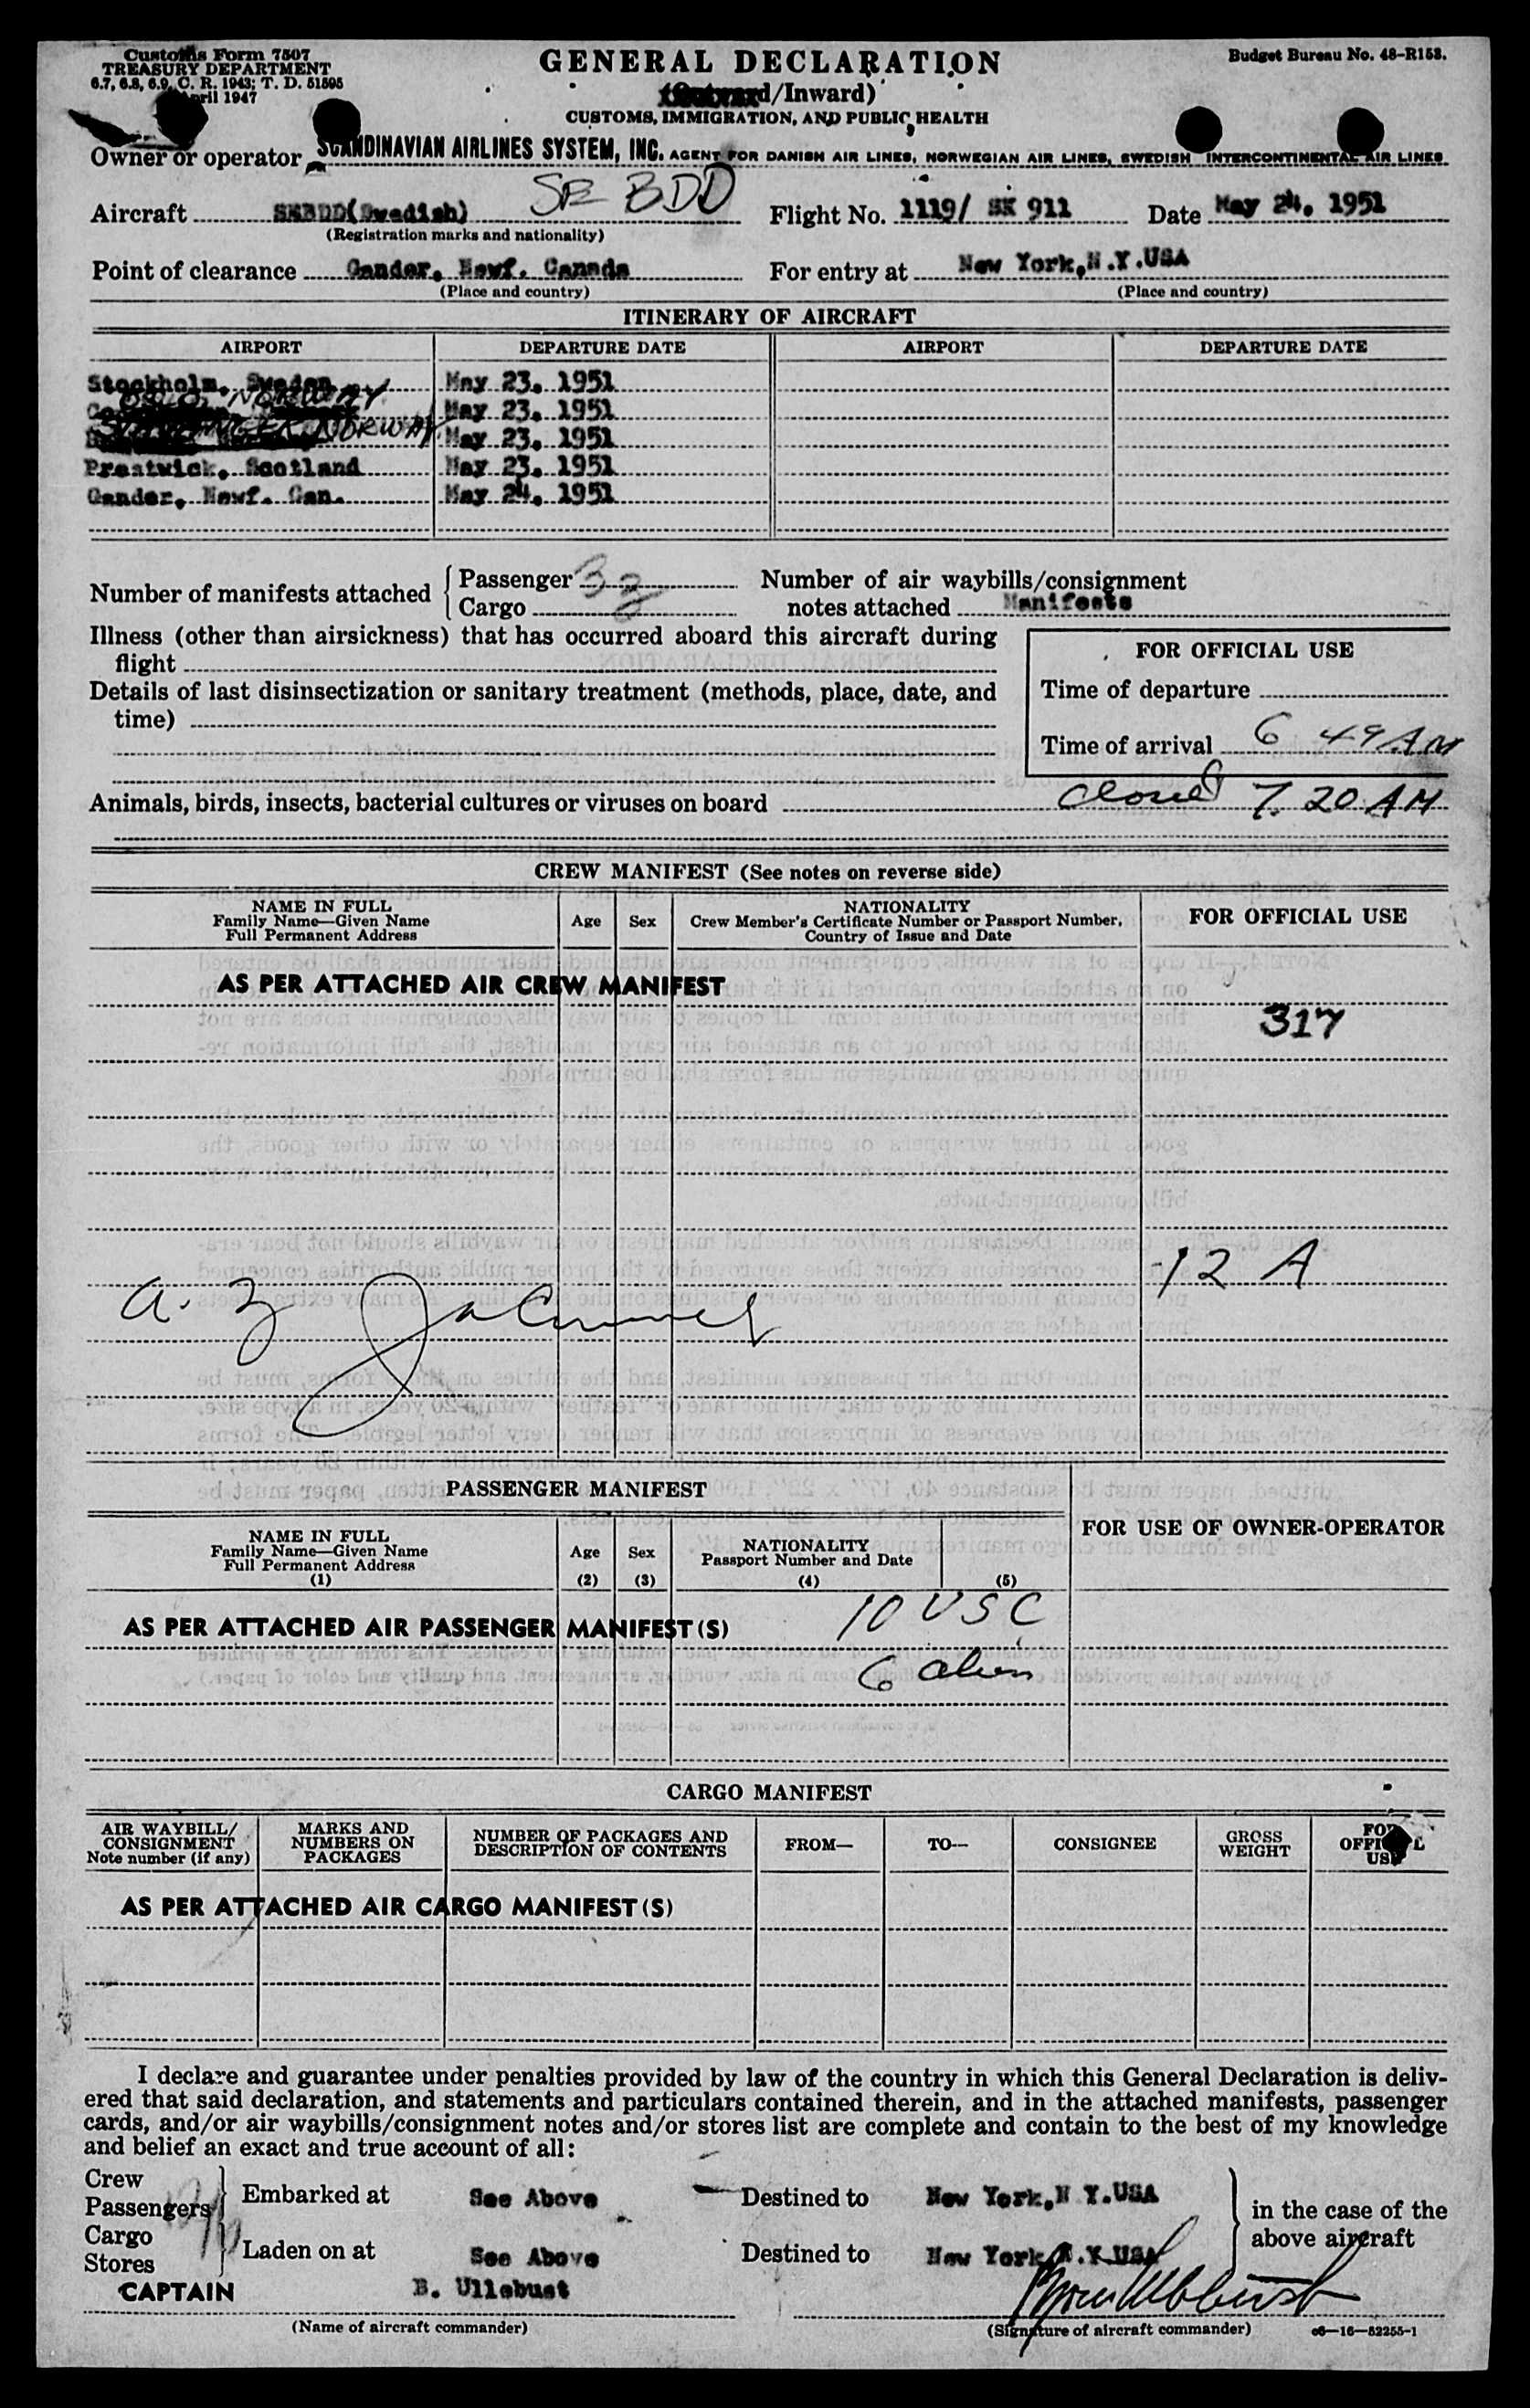 Customs Form 7507
TREASURY DEPARTMENT
6.7, 6.8, 6.9, C. R. 1943; T. D. 51595
April 1947
GENERAL DECLARATION
/Inward)
CUSTOMS, IMMIGRATION, AND PUBLIC HEALTH
Budget Bureau No. 48-R153.
Owner or operator SCANDINAVIAN AIRLINES SYSTEM, INC. AGENT FOR DANISH AIR LINES, NORWEGIAN AIR LINES, SWEDISH INTERCONTINENTAL AIR LINES
Aircraft (Swedish) SE BDD Flight No. 1119/ SK 911 Date May 24, 1951
(Registration marks and nationality)
Point of clearance Gander, Newf. Canada For entry at New York,N.Y.USA
(Place and country) (Place and country)
ITINERARY OF AIRCRAFT
AIRPORT DEPARTURE DATE AIRPORT DEPARTURE DATE
Stockholm, Sweden May 23, 1951
OSLO NORWAY May 23, 1951
STAVANGER NORWAY May 23, 1951
Prestwick, Scotland May 23, 1951
Gander, Newf. Can. May 24, 1951
Number of manifests attached Passenger 3 Number of air waybills/consignment
Cargo notes attached Manifests
Illness (other than airsickness) that has occurred aboard this aircraft during
flight
FOR OFFICIAL USE
Details of last disinsectization or sanitary treatment (methods, place, date, and
time)
Time of departure
Time of arrival 6 49 AM
Animals, birds, insects, bacterial cultures or viruses on board closed 7.20 AM
CREW MANIFEST (See notes on reverse side)
NAME IN FULL
Family Name—Given Name
Full Permanent Address
Age Sex
NATIONALITY
Crew Member's Certificate Number or Passport Number,
Country of Issue and Date
FOR OFFICIAL USE
AS PER ATTACHED AIR CREW MANIFEST
317
12 A
PASSENGER MANIFEST
NAME IN FULL
Family Name—Given Name
Full Permanent Address
(1)
Age
(2)
Sex
(3)
NATIONALITY
Passport Number and Date
(4) (5)
FOR USE OF OWNER-OPERATOR
AS PER ATTACHED AIR PASSENGER MANIFEST(S) 10 USC
6 alien
CARGO MANIFEST
AIR WAYBILL/
CONSIGNMENT
Note number (if any)
MARKS AND
NUMBERS ON
PACKAGES
NUMBER OF PACKAGES AND
DESCRIPTION OF CONTENTS
FROM— TO— CONSIGNEE
GROSS
WEIGHT
FOR
OFFICIAL
USE
AS PER ATTACHED AIR CARGO MANIFEST(S)
I declare and guarantee under penalties provided by law of the country in which this General Declaration is deliv-
ered that said declaration, and statements and particulars contained therein, and in the attached manifests, passenger
cards, and/or air waybills/consignment notes and/or stores list are complete and contain to the best of my knowledge
and belief an exact and true account of all:
Crew
Passengers
Embarked at See Above Destined to New York,N Y.USA
in the case of the
above aircraft
Cargo
Stores
Laden on at See Above Destined to New York,N.Y.USA
CAPTAIN B. Ullebust
(Name of aircraft commander) (Signature of aircraft commander) c6—16—52255-1